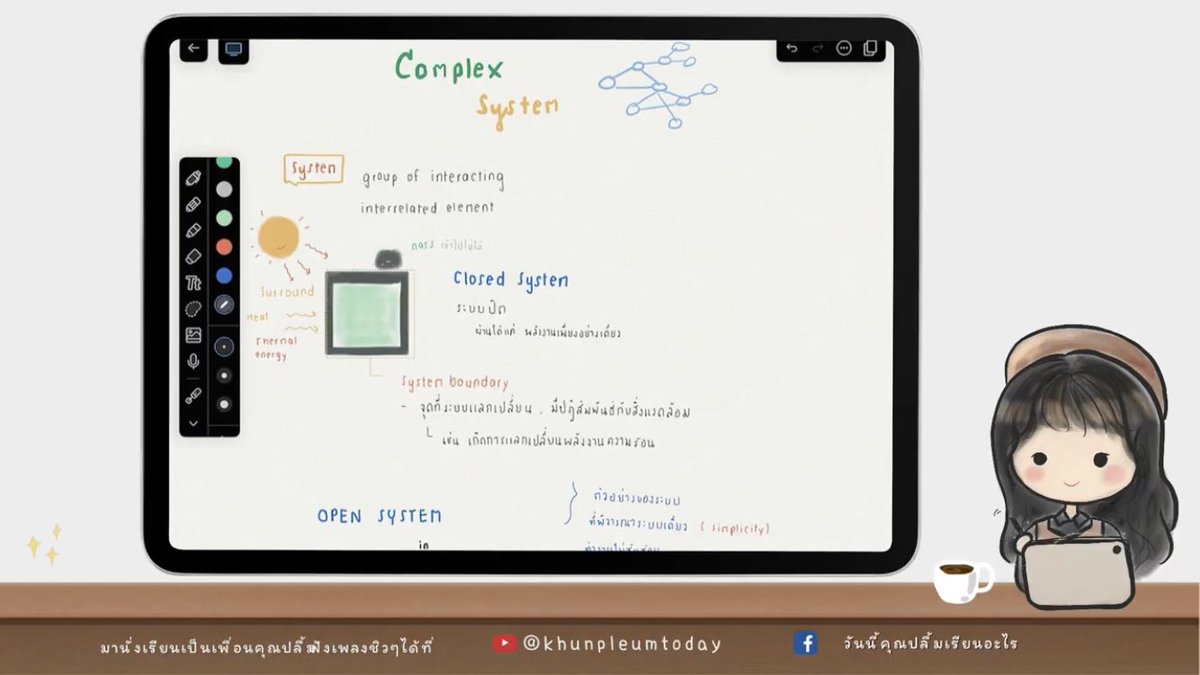 Complex
System
Systen
group of interacting
interrelated element
mass เข้าไปไม่ได้
Closed System
ระบบปิด
ผ่านได้แค่ พลังงานเพียงอย่างเดียว
Surround
Heat
Thermal
energy
System boundary
- จุดที่ระบบแลกเปลี่ยน , มีปฏิสัมพันธ์กับสิ่งแวดล้อม
เช่น เกิดการแลกเปลี่ยนพลังงานความร้อน
OPEN SYSTEM
in
ตัวอย่างของระบบ
ที่พิจารณาระบบเดี่ยว (simplicity)
Tt
มานั่งเรียนเป็นเพื่อนคุณปลื้มฟังเพลงชิวๆได้ที่
@khunpleumtoday
วันนี้คุณปลื้มเรียนอะไร